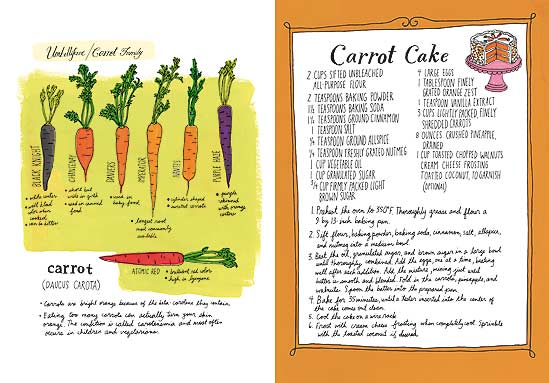 Umbelliferae / Carrot Family
BLACK KNIGHT
CHANTENAY
DANVERS
IMPERATOR
NANTES
PURPLE HAZE
• white center
• will bleed
color when
cooked
• can be bitter
• short but
wide in girth
• used in canned
food
• used in
baby food
• longest root
most commonly
available
• cylinder shaped
• sweetest carrots
• purple
skinned
with orange
centers
carrot
(DAUCUS CAROTA)
ATOMIC RED
• brilliant red color
• high in lycopene
• Carrots are bright orange because of the beta-carotene they contain.
• Eating too many carrots can actually turn your skin
orange. The condition is called carotenemia and most often
occurs in children and vegetarians.
Carrot Cake
2 CUPS SIFTED UNBLEACHED
ALL-PURPOSE FLOUR
2 TEASPOONS BAKING POWDER
1½ TEASPOONS BAKING SODA
1½ TEASPOONS GROUND CINNAMON
1 TEASPOON SALT
¼ TEASPOON GROUND ALLSPICE
¼ TEASPOON FRESHLY GRATED NUTMEG
1 CUP VEGETABLE OIL
1 CUP GRANULATED SUGAR
¾ CUP FIRMLY PACKED LIGHT
BROWN SUGAR
4 LARGE EGGS
1 TABLESPOON FINELY
GRATED ORANGE ZEST
1 TEASPOON VANILLA EXTRACT
3 CUPS LIGHTLY PACKED, FINELY
SHREDDED CARROTS
8 OUNCES CRUSHED PINEAPPLE,
DRAINED
1 CUP TOASTED CHOPPED WALNUTS
CREAM CHEESE FROSTING
TOASTED COCONUT, TO GARNISH
(OPTIONAL)
1. Preheat the oven to 350°F. Thoroughly grease and flour a
9 by 13-inch baking pan.
2. Sift flour, baking powder, baking soda, cinnamon, salt, allspice,
and nutmeg into a medium bowl.
3. Beat the oil, granulated sugar, and brown sugar in a large bowl
until thoroughly combined. Add the eggs, one at a time, beating
well after each addition. Add the mixture, mixing just until
batter is smooth and blended. Fold in the carrots, pineapple, and
walnuts. Spoon the batter into the prepared pan.
4. Bake for 35 minutes, until a tester inserted into the center of
the cake comes out clean.
5. Cool the cake on a wire rack.
6. Frost with cream cheese frosting when completely cool. Sprinkle
with the toasted coconut if desired.